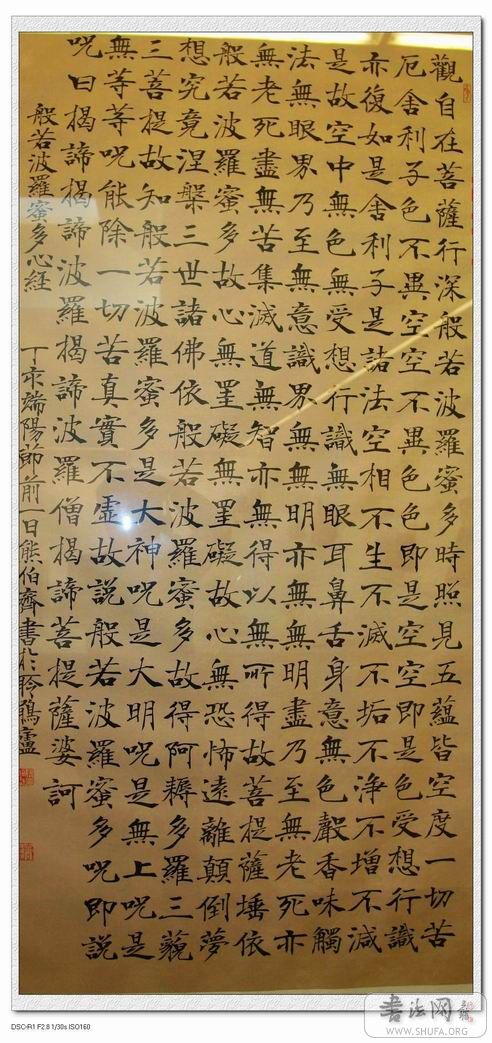 觀自在菩薩行深般若波羅蜜多時照見五蘊皆空度一切苦
厄舍利子色不異空空不異色色即是空空即是色受想行識
亦復如是舍利子是諸法空相不生不滅不垢不浄不增不減
是故空中無色無受想行識無眼耳鼻舌身意無色聲香味觸
法無眼界乃至無意識界無無明亦無無明盡乃至無老死亦
無老死盡無苦集滅道無智亦無得以無所得故菩提薩埵依
般若波羅蜜多故心無罣礙無罣礙故心無恐怖遠離顛倒夢
想究竟涅槃三世諸佛依般若波羅蜜多故得阿耨多羅三藐
三菩提故知般若波羅蜜多是大神呪是大明呪是無上呪是
無等等呪能除一切苦真實不虛故說般若波羅蜜多呪即說
呪曰揭諦揭諦波羅揭諦波羅僧揭諦菩提薩婆訶
般若波羅蜜多心経
丁亥端陽節前一日熊伯齊書於聆鶴廬
書法网
WWW.SHUFA.ORG
DSC-R1 F2.8 1/30s ISO160